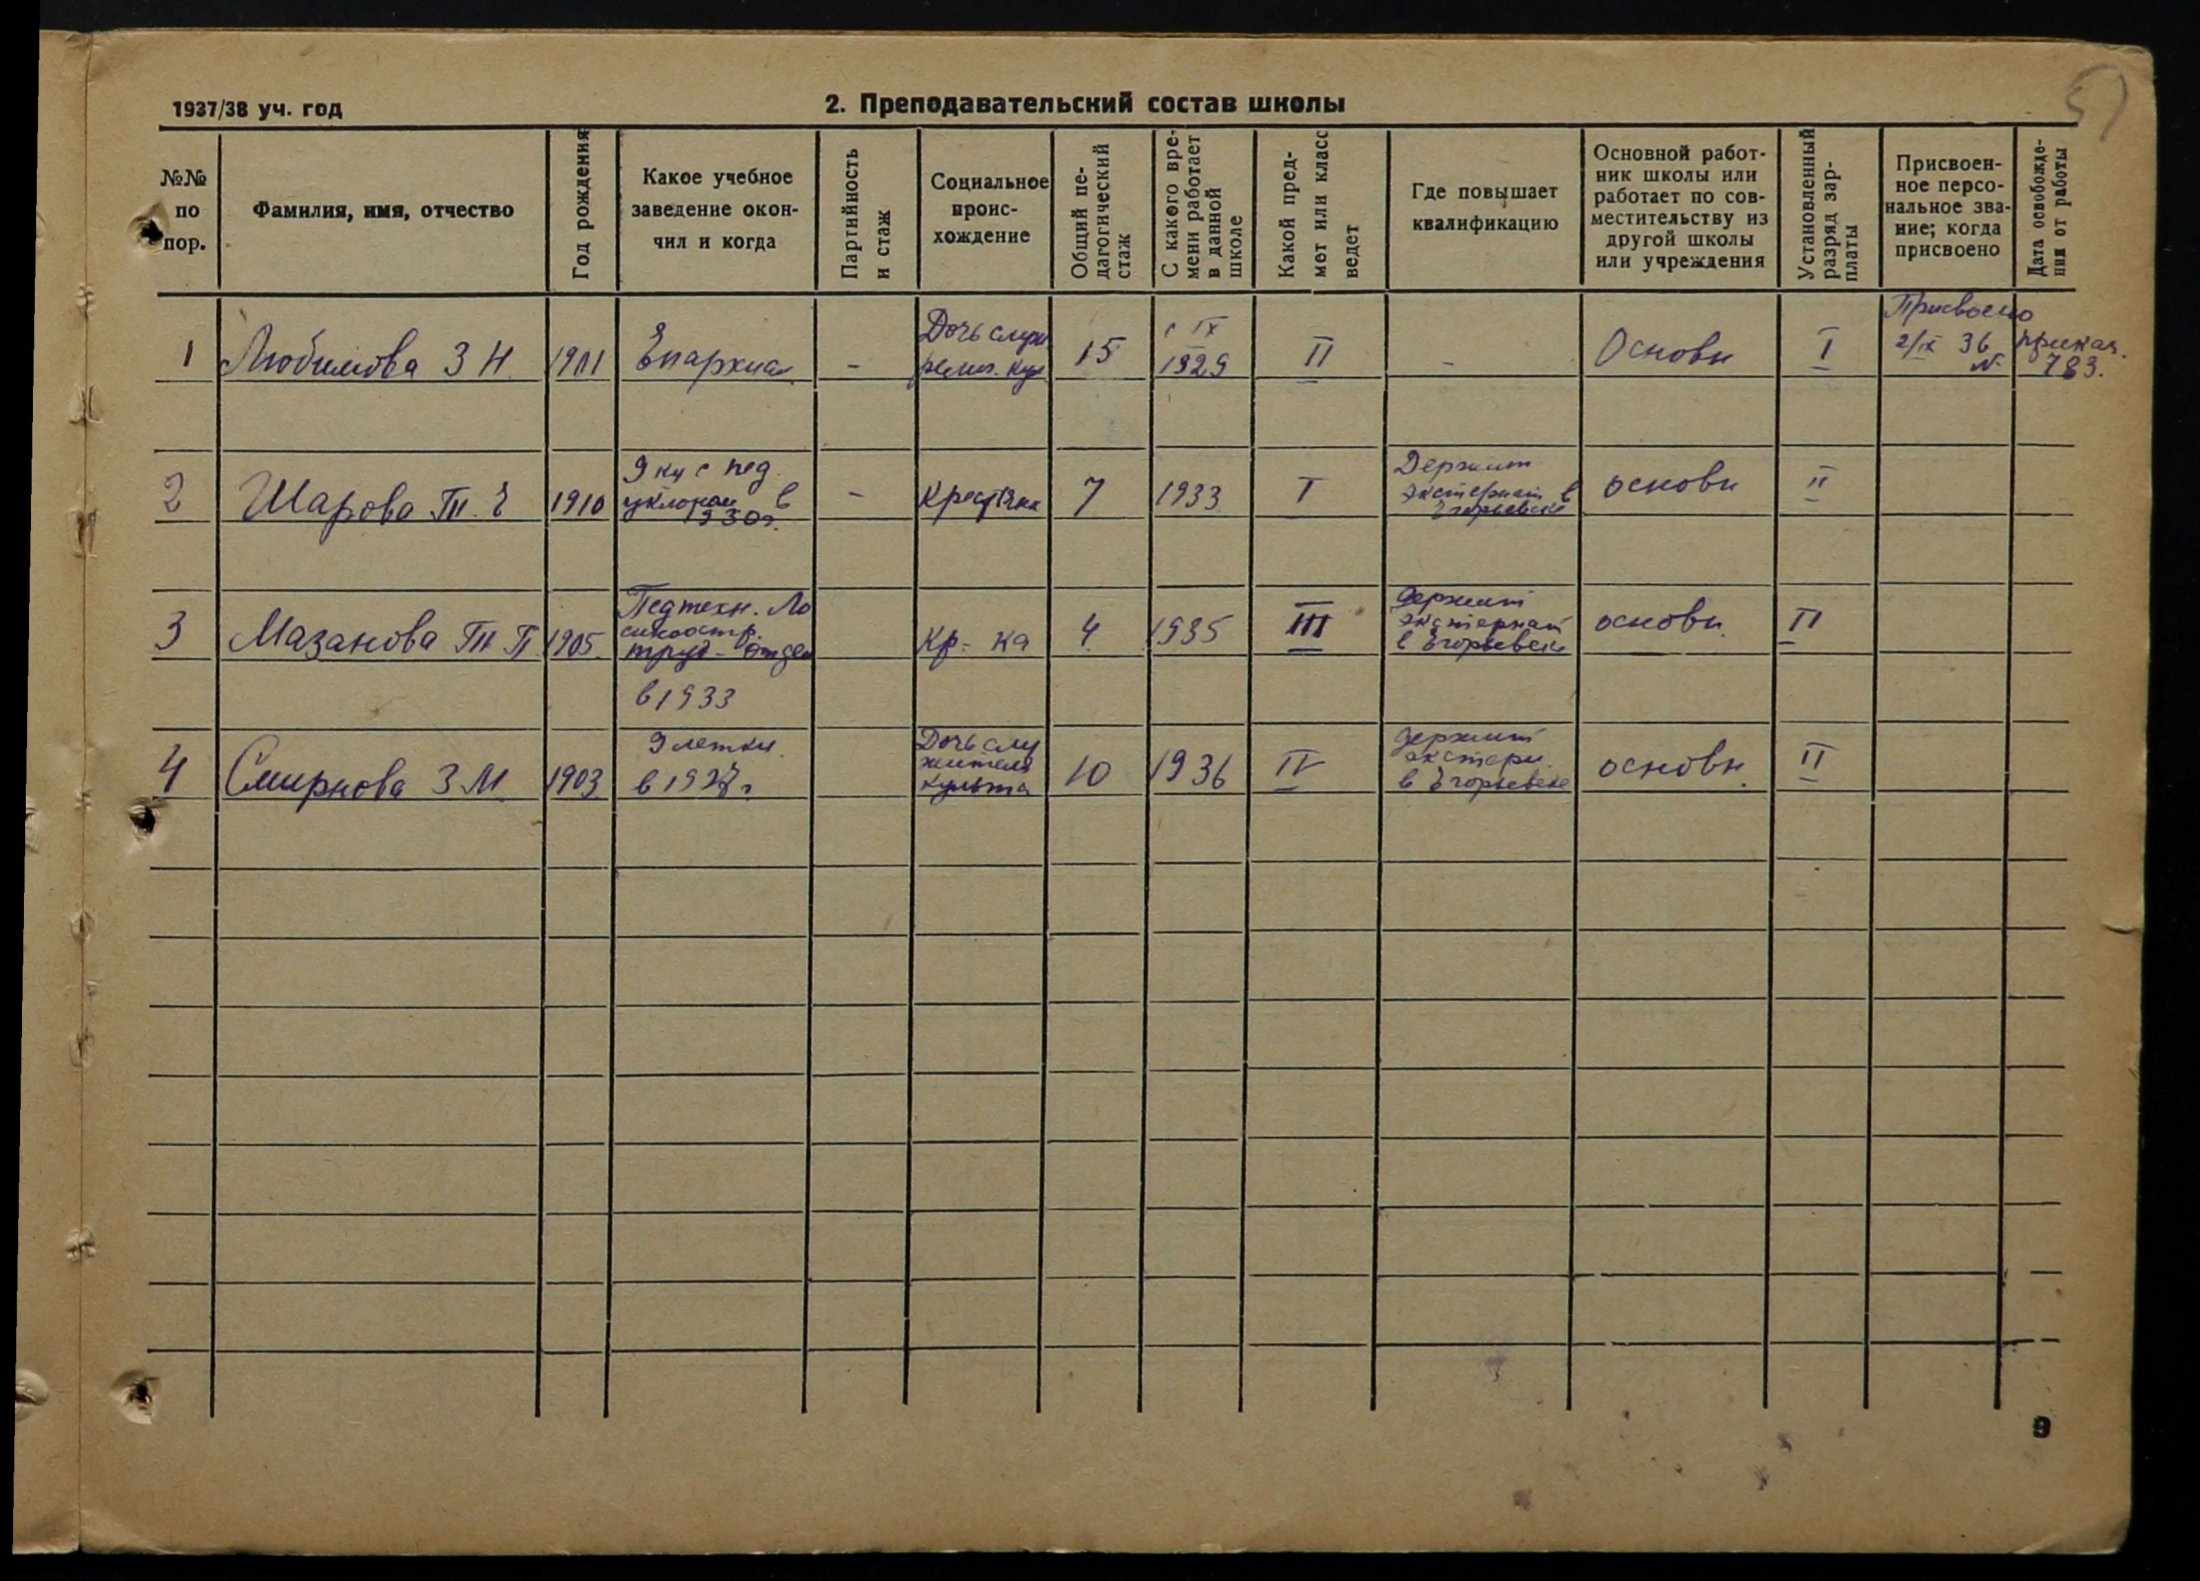 1937/38 уч. год
2. Преподавательский состав школы
57
№№ по пор.
Фамилия, имя, отчество
Год рождения
Какое учебное заведение окон-
чил и когда
Партийность и стаж
Социальное проис-
хождение
Общий пе-
дагогический стаж
С какого вре-
мени работает в данной школе
Какой пред-
мет или класс ведет
Где повышает квалификацию
Основной работ-
ник школы или работает по сов-
местительству из другой школы или учреждения
Установленный разряд зар-
платы
Присвоен-
ное персо-
нальное зва-
ние; когда присвоено
Дата освобожде-
ния от работы
1 Любимова З Н. 1901 Епархиал. – Дочь служ религ. кул 15 с IX 1929 II – Основн I Присвоено 2/IX 36 приказ. № 783.
2 Шарова Т. Е 1910 9 ку с пед уклоном в 1930г. – Крестянка 7 1933 I Держит экстернат в Егорьевске основн II
3 Мазанова Т П 1905 Педтехн. Ло
синоостр. труд- отдел в 1933 Кр-ка 4 1935 III Держит экстернат в Егорьевске основн. II
4 Смирнова З М 1903 9 летки в 1927г Дочь слу
жителя культа 10 1936 IV держит экстерн. в Егорьевске основн. II
9